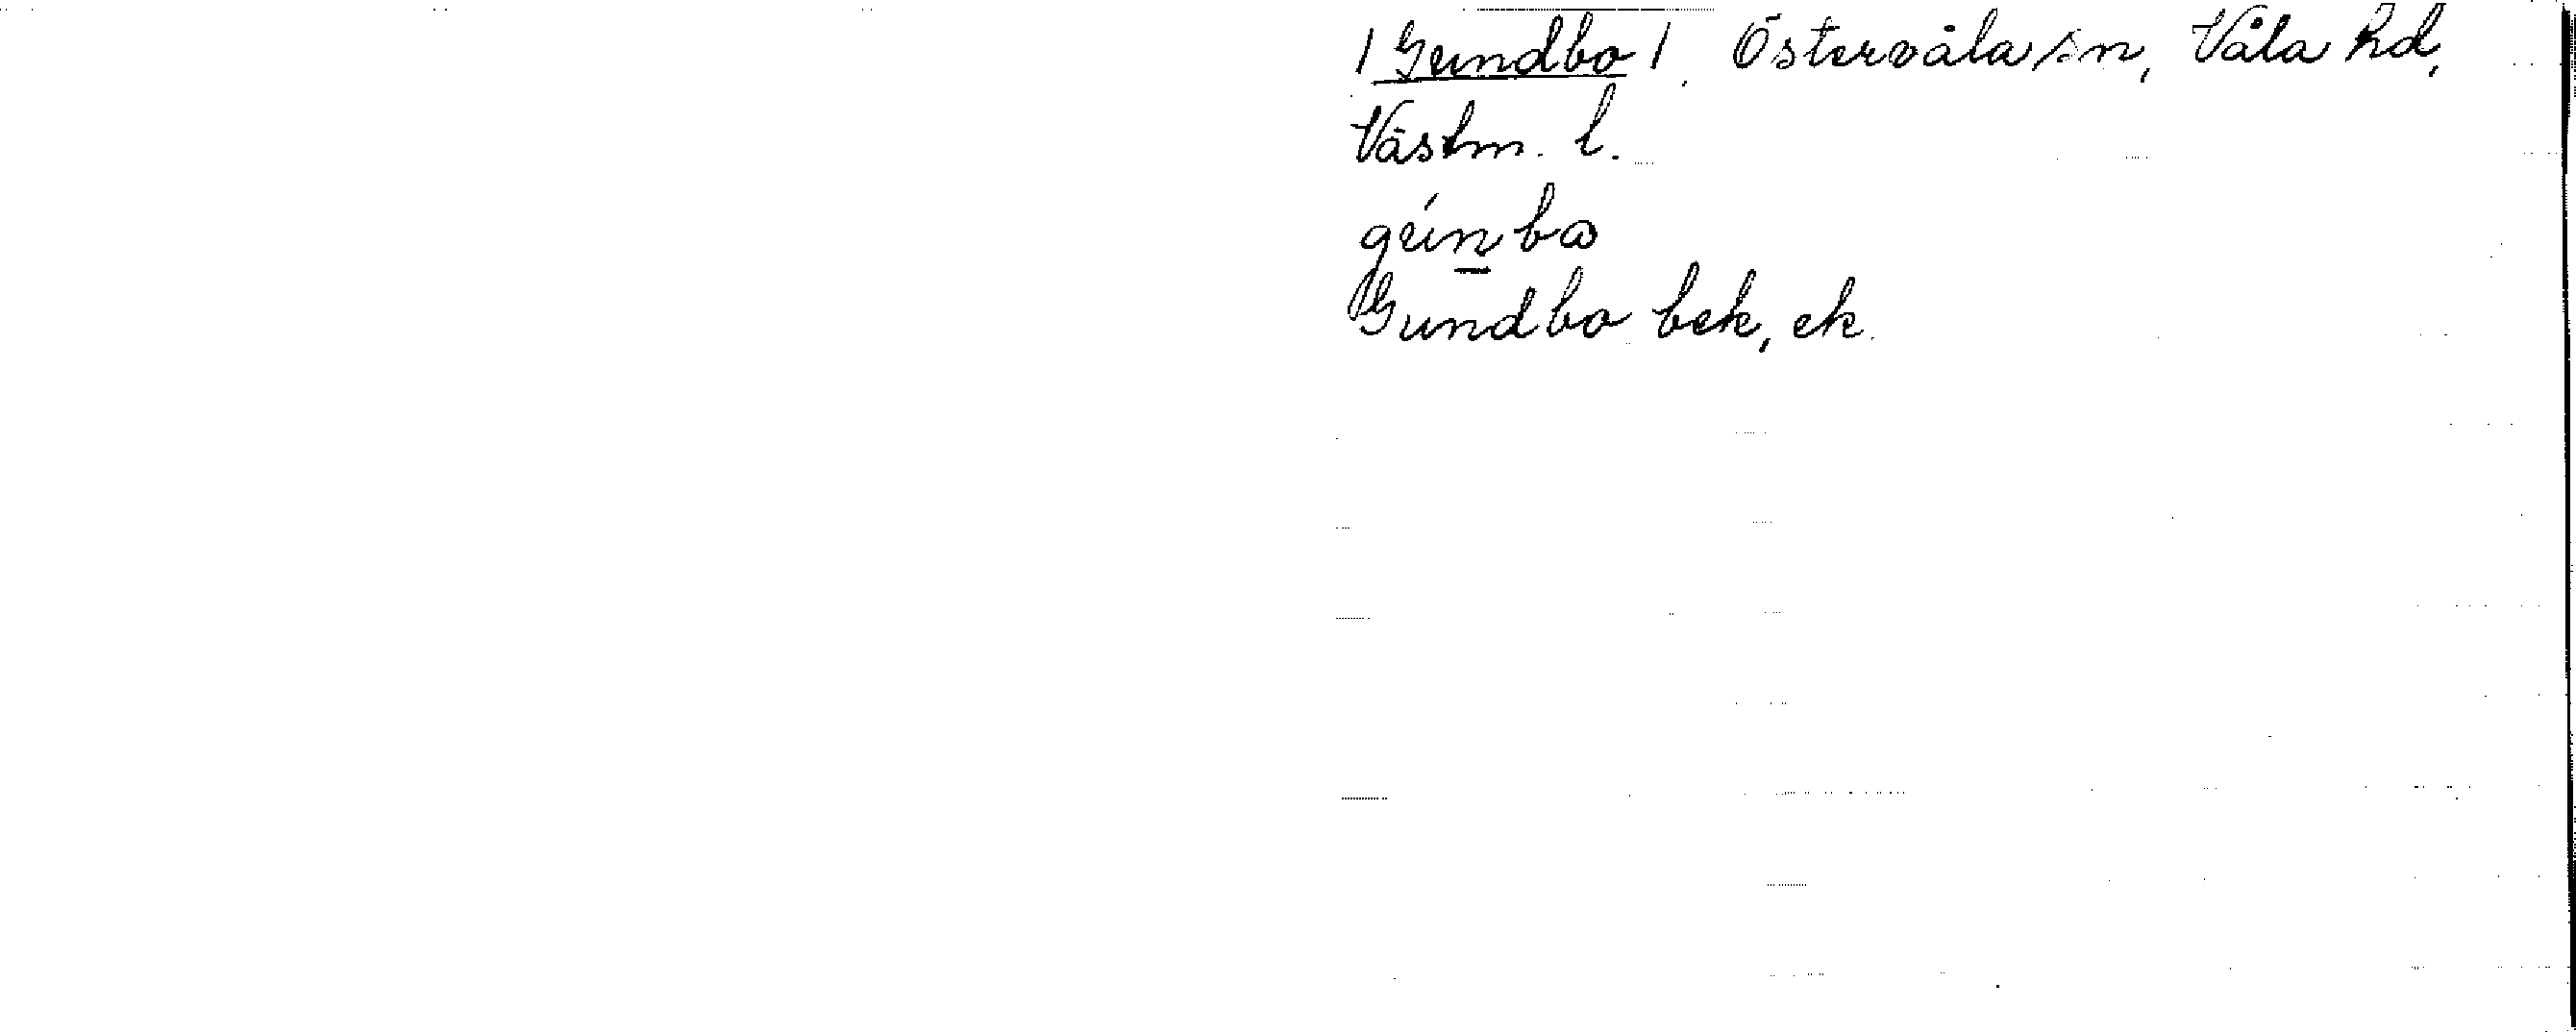 /Gundbo/. Östervåla sn, Våla hd,
Västm. l.
gúnbω
Gundbo bek, ek.